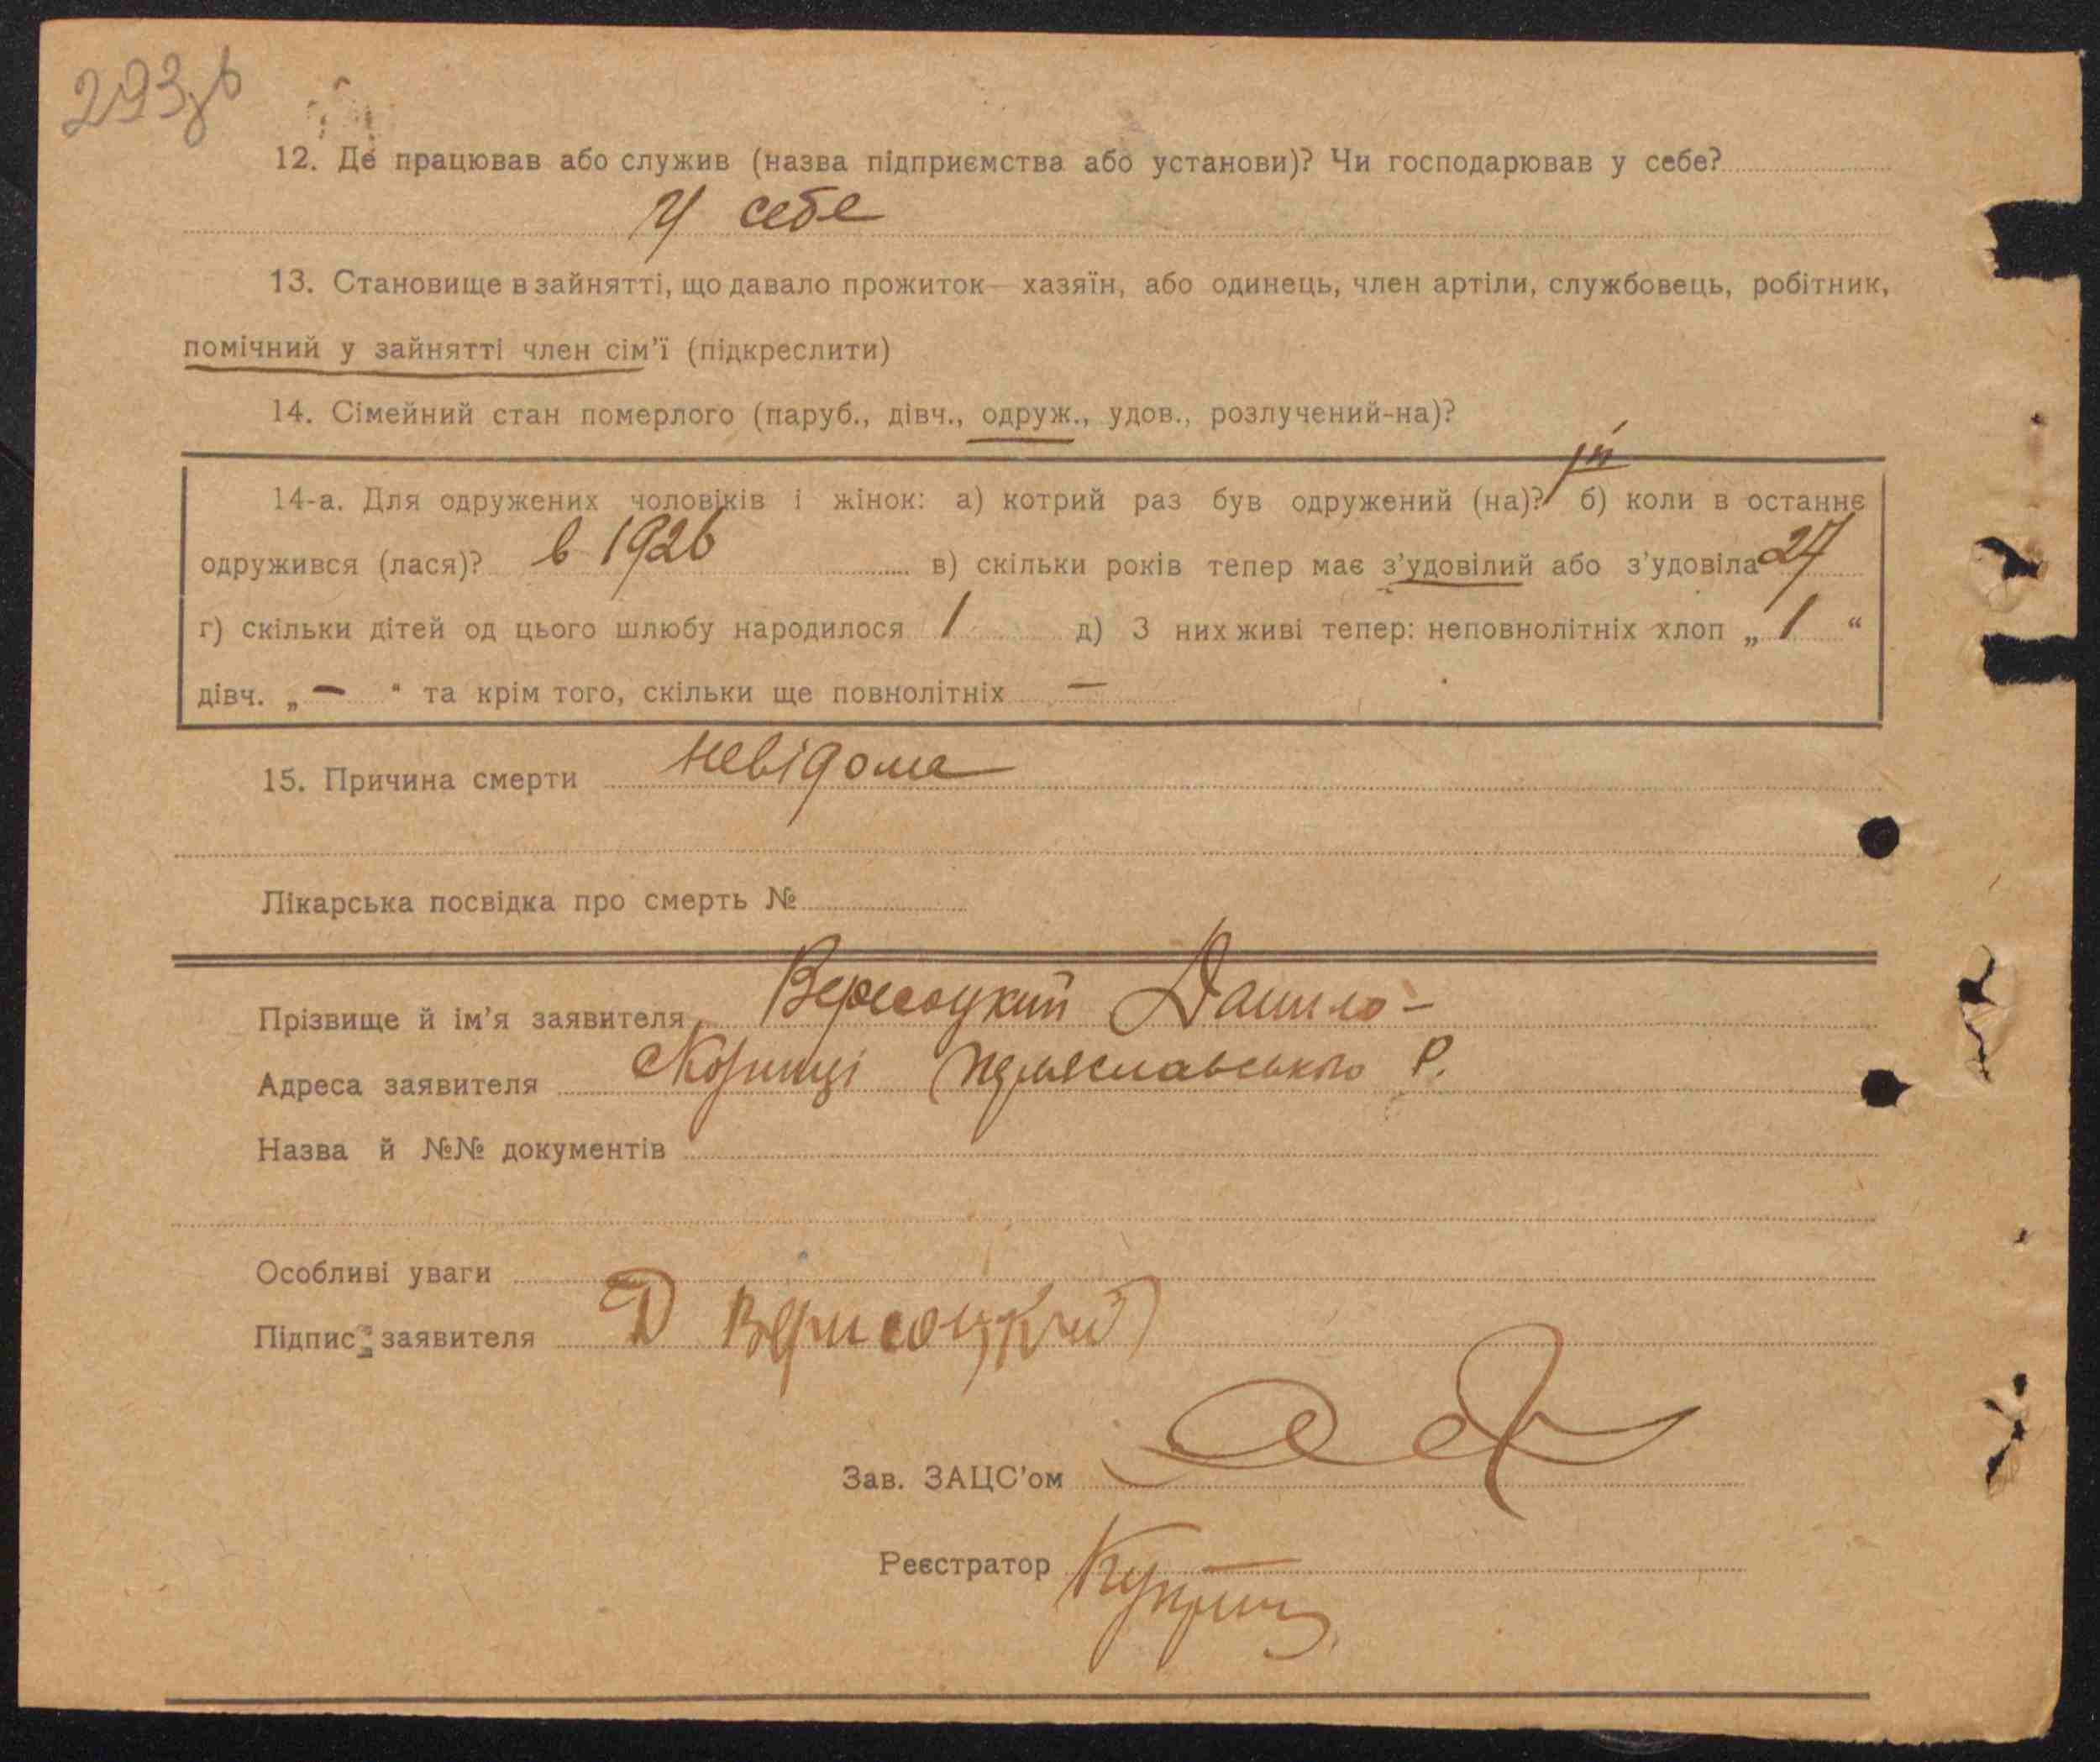 293зв
12. Де працював або служив (назва підприємства або установи)? Чи господарював у себе?
У себе
13. Становище в зайнятті, що давало прожиток— хазяїн, або одинець, член артіли, службовець, робітник,
помічний у зайнятті член сім'ї (підкреслити)
14. Сімейний стан померлого (паруб., дівч., одруж., удов., розлучений-на)?
14-а. Для одружених чоловіків і жінок: а) котрий раз був одружений (на)? б) коли в останнє
одружився (лася)? в 1926 в) скільки років тепер має з'удовілий або з'удовіла 27
г) скільки дітей од цього шлюбу народилося 1 д) З них живі тепер: неповнолітніх хлоп „ 1 “
дівч. „ — “ та крім того, скільки ще повнолітніх —
15. Причина смерти невідома
Лікарська посвідка про смерть №
Прізвище й ім'я заявителя Вересоцкий Данило
Адреса заявителя Переяславського Р.
Назва й №№ документів
Особливі уваги
Підпис заявителя Д Верисоцкий
Зав. ЗАЦС'ом
Реєстратор